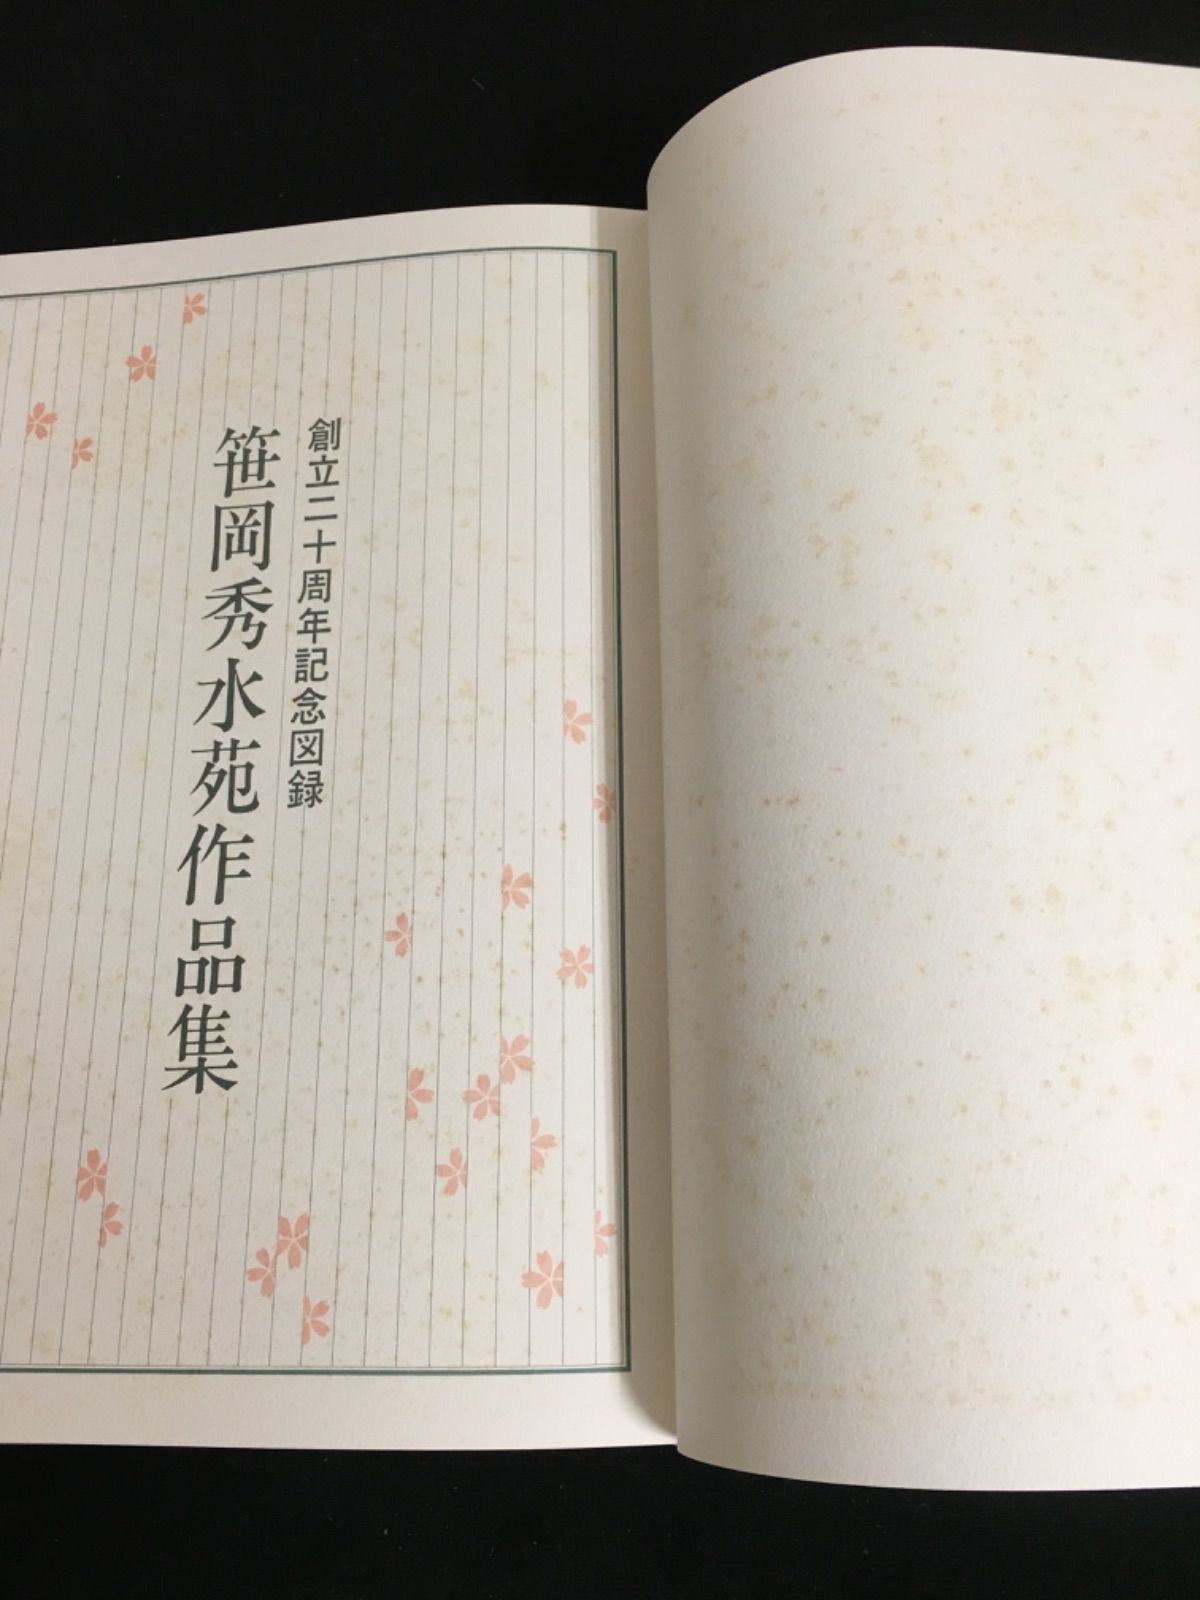 創立二十周年記念図録
笹岡秀水苑作品集